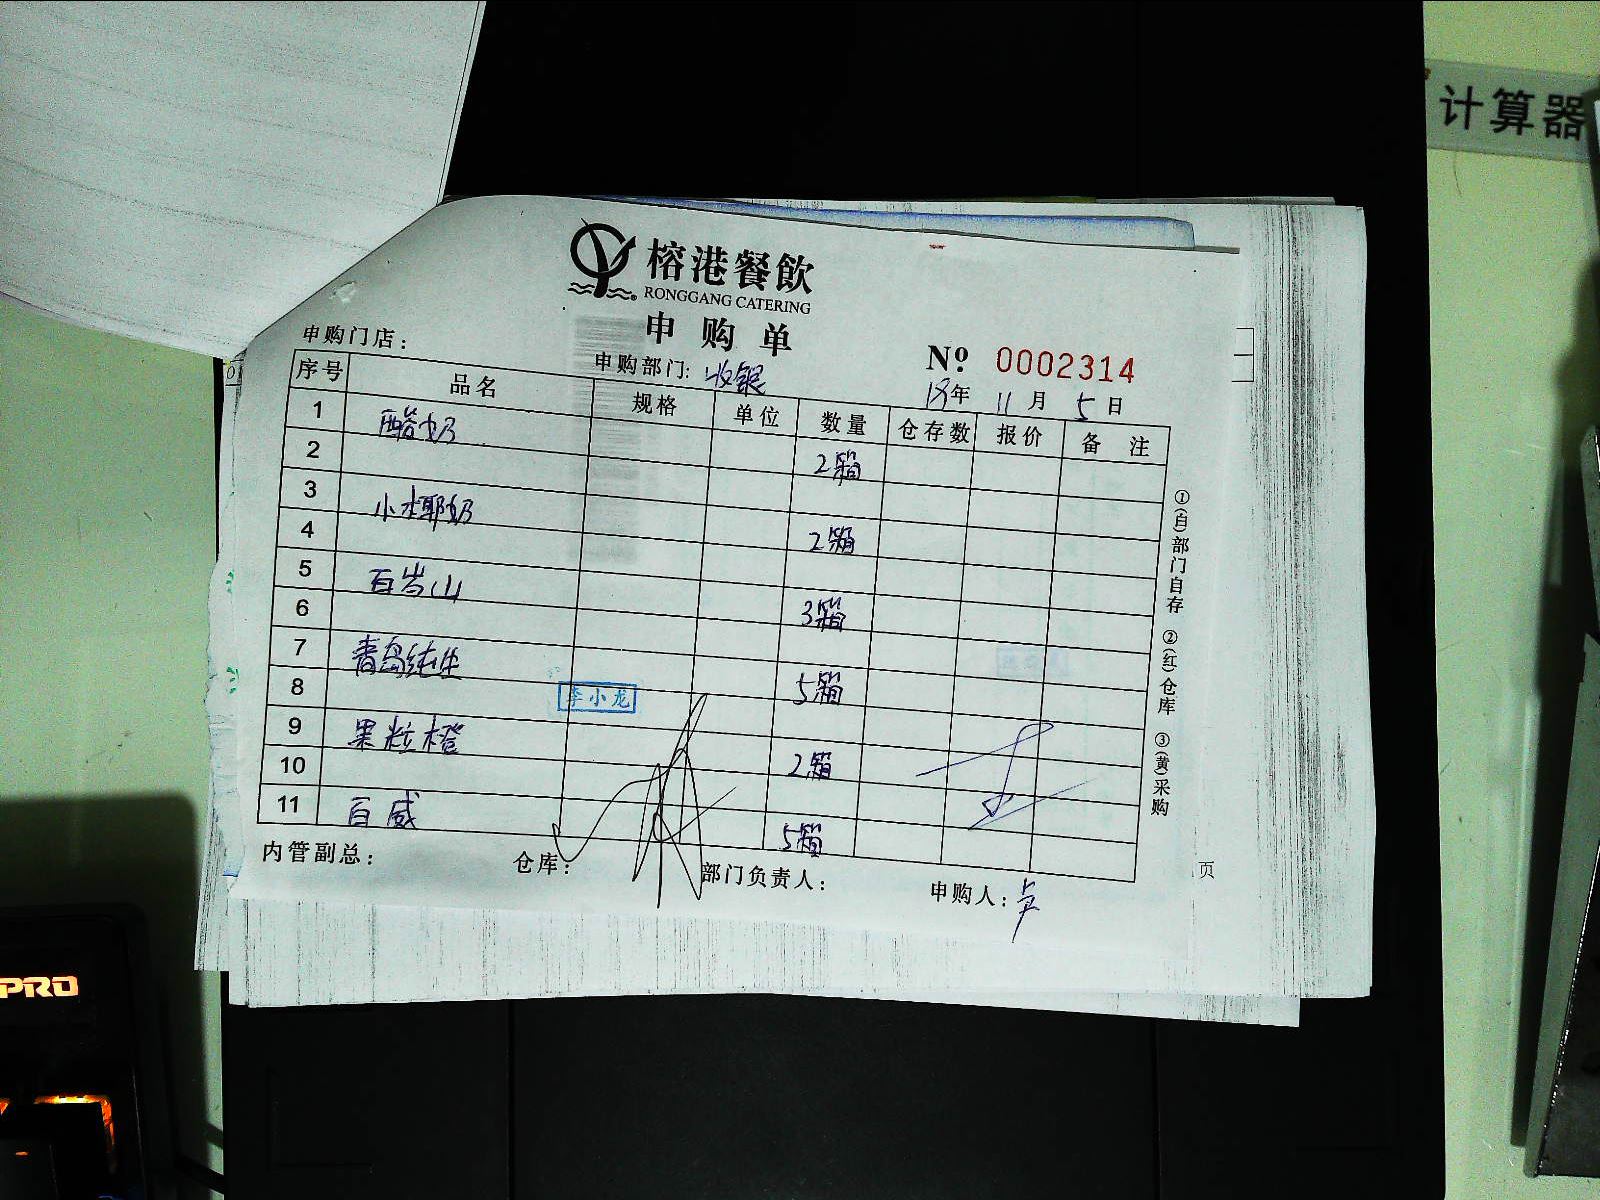 计算器
榕港餐飲
RONGGANG CATERING
申购单
申购门店：
申购部门: 收银
Nº 0002314
18年 11月 5日
序号 品名 规格 单位 数量 仓存数 报价 备注
1 酸奶 2箱
2
3 小木耶奶 2箱
4
5 百岁山 3箱
6
7 青岛纯生 5箱
8
李小龙
9 果粒橙 2箱
10
11 百威 5箱
内管副总： 仓库： 部门负责人： 申购人：
①(白)部门自存 ②(红)仓库 ③(黄)采购
页
PRO